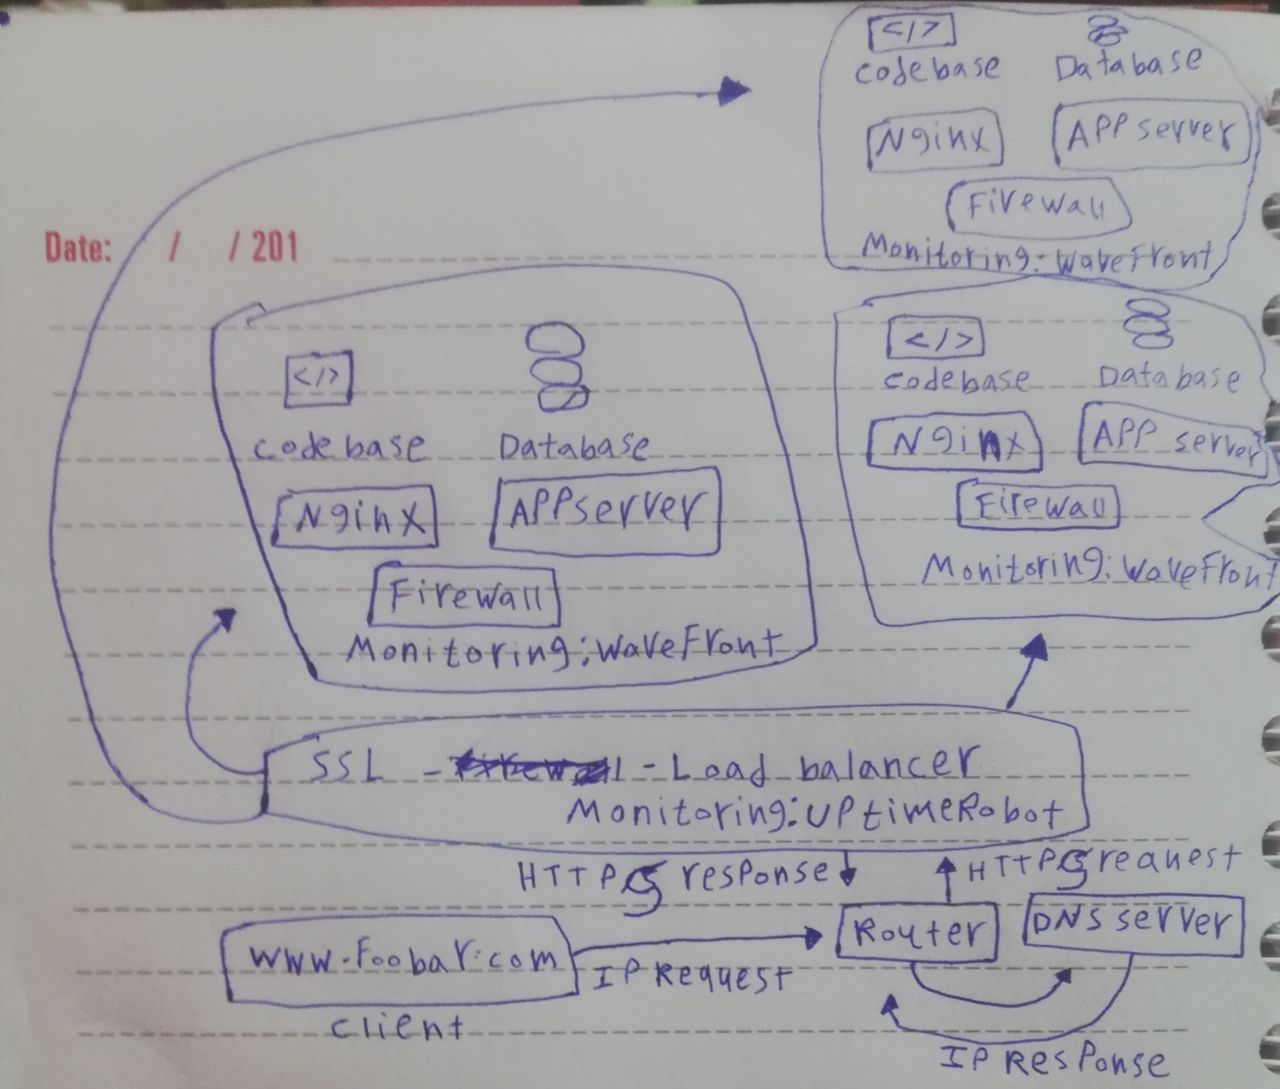 </>
codebase
Database
Nginx
APP server
Firewall
Monitoring:-Wavefront
Date: / / 201
</>
codebase
Database
Nginx
APPserver
Firewall
Monitoring:WaveFront
</>
codebase
Database
Nginx
APP server
Firewall
Monitoring:WaveFront
SSL - - Load balancer
Monitoring:UPtimeRobot
HTTPS response
HTTPS request
www.Foobar.com
client
IP Request
Router
DNS server
IP Response